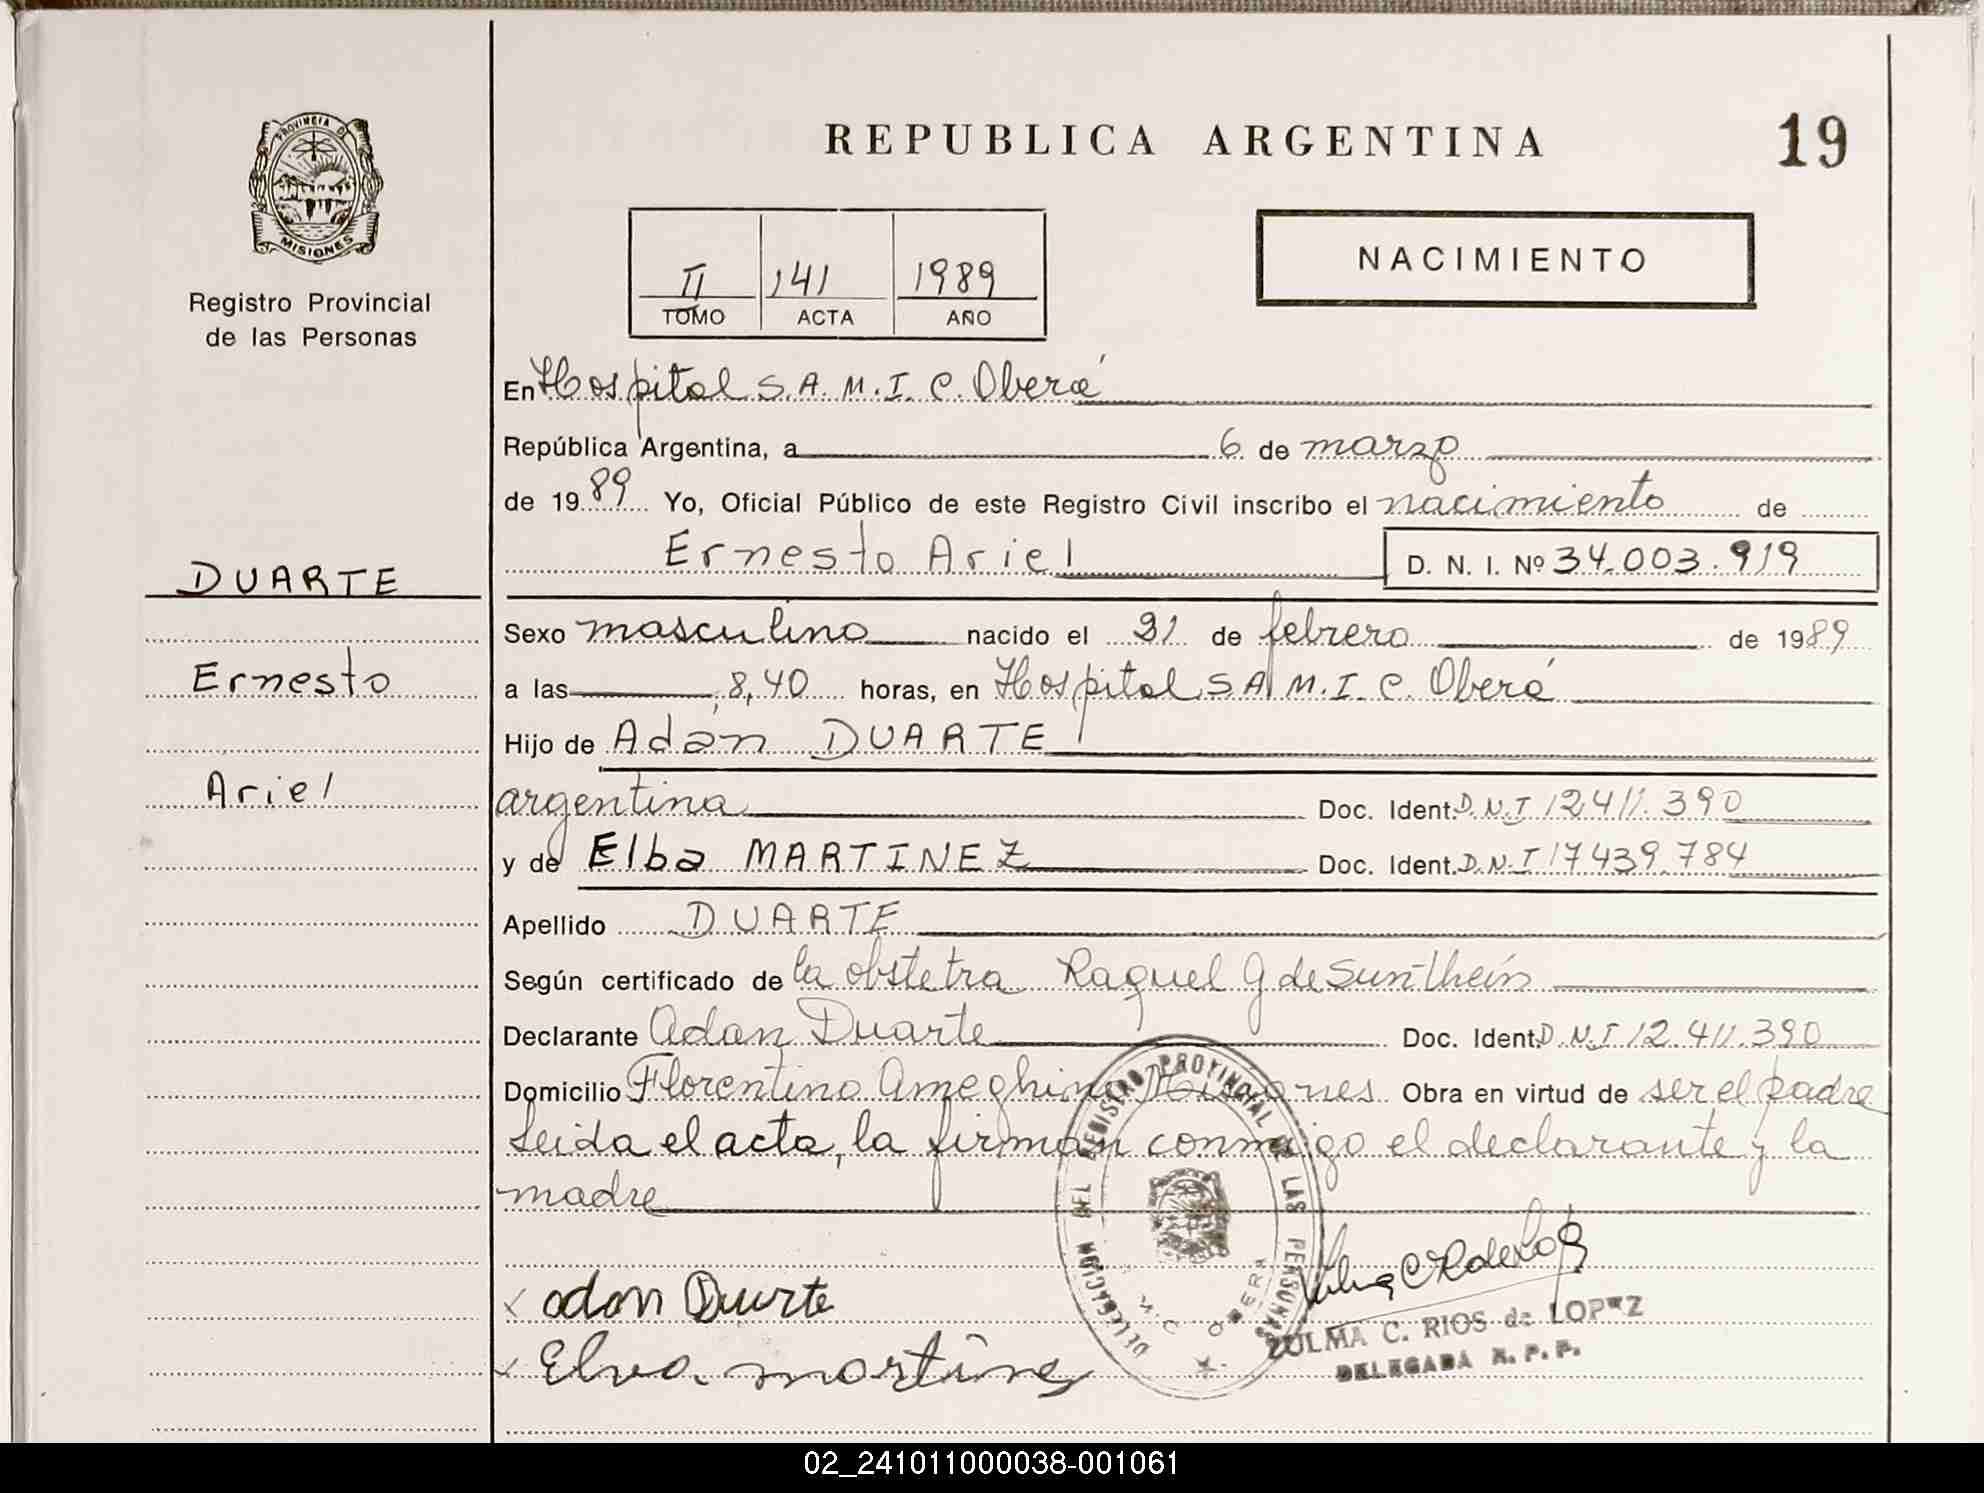 REPUBLICA ARGENTINA
19
PROVINCIA DE
MISIONES
Registro Provincial
de las Personas
II 141 1989
TOMO ACTA AÑO
NACIMIENTO
En Hospital S.A.M.I.C. Oberá
República Argentina, a 6 de marzo
de 1989 Yo, Oficial Público de este Registro Civil inscribo el nacimiento de
Ernesto Ariel D. N. I. Nº 34.003.919
DUARTE
Ernesto
Ariel
Sexo masculino nacido el 21 de febrero de 1989
a las 8,40 horas, en Hospital S.A.M.I.C. Oberá
Hijo de Adán DUARTE
argentina Doc. Ident. D.N.I 12411.390
y de Elba MARTINEZ Doc. Ident. D.N.I 17439.784
Apellido DUARTE
Según certificado de la obstetra Raquel G de
Declarante Adan Duarte Doc. Ident. D.N.I 12.411.390
Domicilio Florentino Ameghino Misiones Obra en virtud de ser el padre
Leida el acta, la firman conmigo el declarante y la
madre
x adan Duarte
x Elva martines
DELEGACION DEL REGISTRO PROVINCIAL DE LAS PERSONAS
OBERA
ZULMA C. RIOS de LOPEZ
DELEGADA R. P. P.
02_241011000038-001061